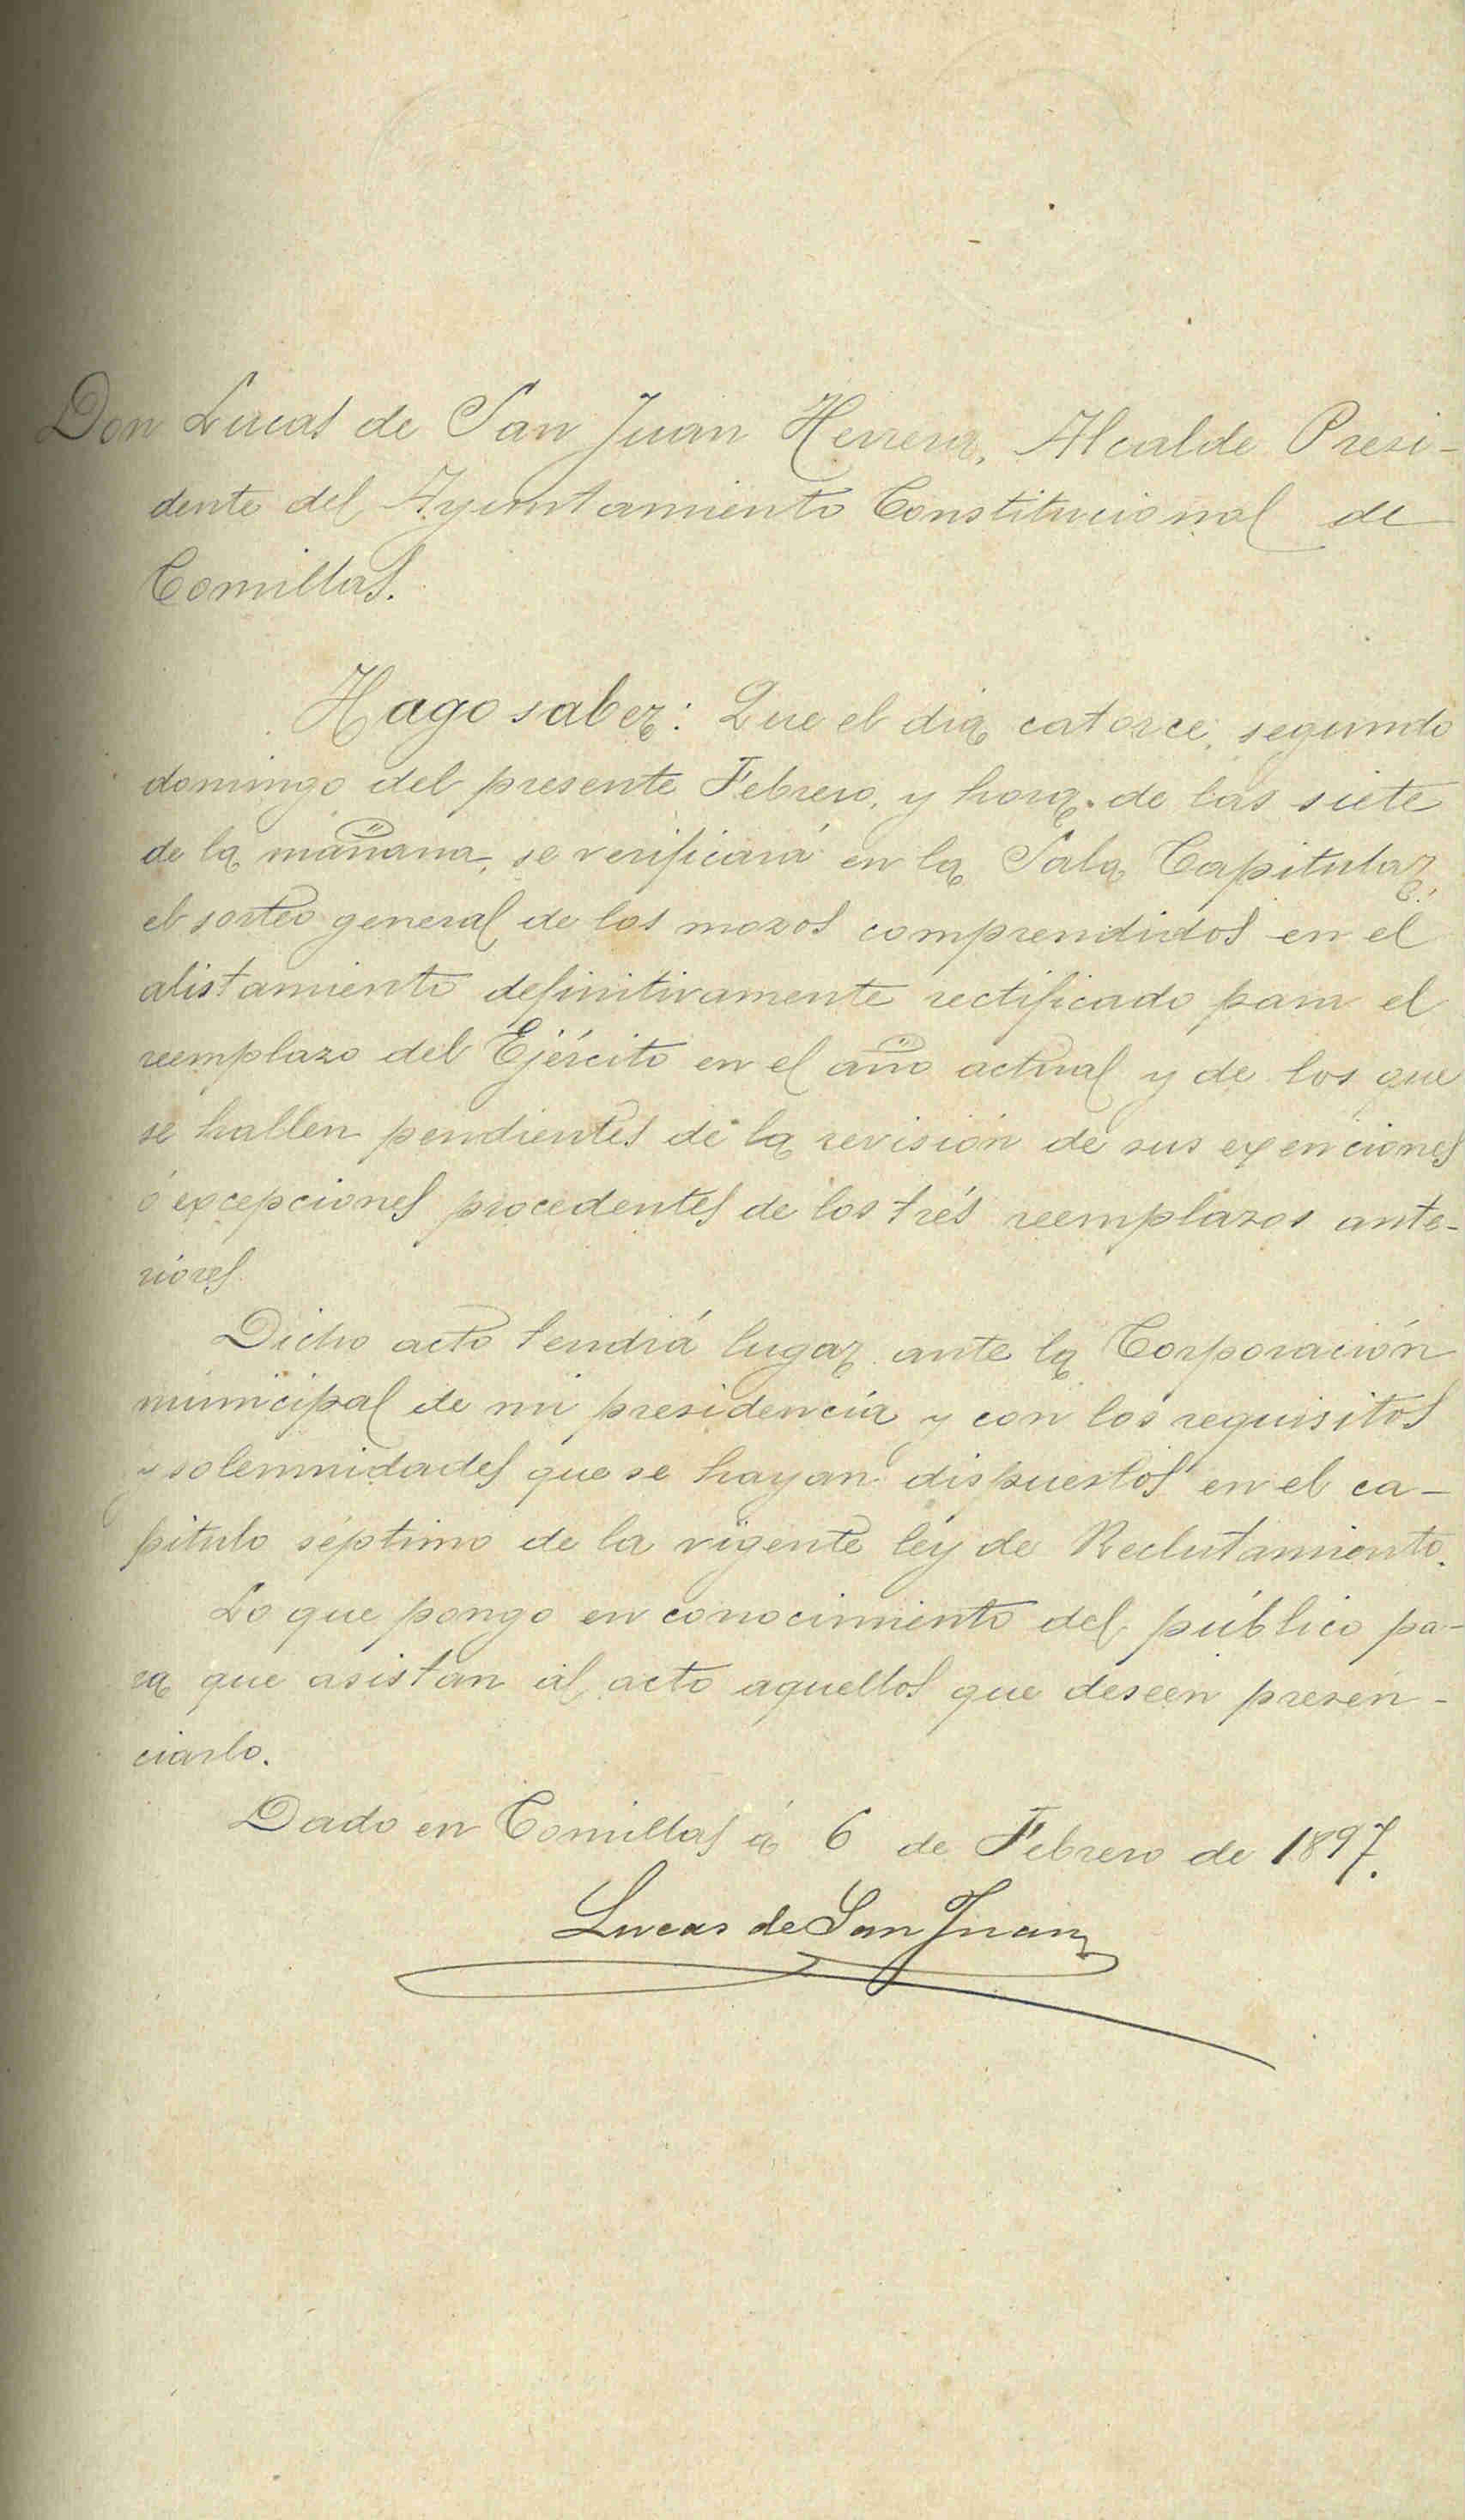 Don Lucas de San Juan Herrera, Alcalde Presi-
dente del Ayuntamiento Constitucional de
Comillas.
Hago saber: Que el dia catorce, segundo
domingo del presente Febrero, y hora de las siete
de la mañana, se verificará en la Sala Capitular
el sorteo general de los mozos comprendidos en el
alistamiento definitivamente rectificado para el
reemplazo del Ejército en el año actual y de los que
se hallen pendientes de la revisión de sus exenciones
ó excepciones procedentes de los trés reemplazos ante-
riores.
Dicho acto tendrá lugar ante la Corporación
municipal de mi presidencia y con los requisitos
y solemnidades que se hayan dispuestos en el ca-
pitulo séptimo de la vigente ley de Reclutamiento.
Lo que pongo en conocimiento del público pa-
ra que asistan al acto aquellos que deseen presen-
ciarlo.
Dado en Comillas á 6 de Febrero de 1897.
Lucas de San Juan